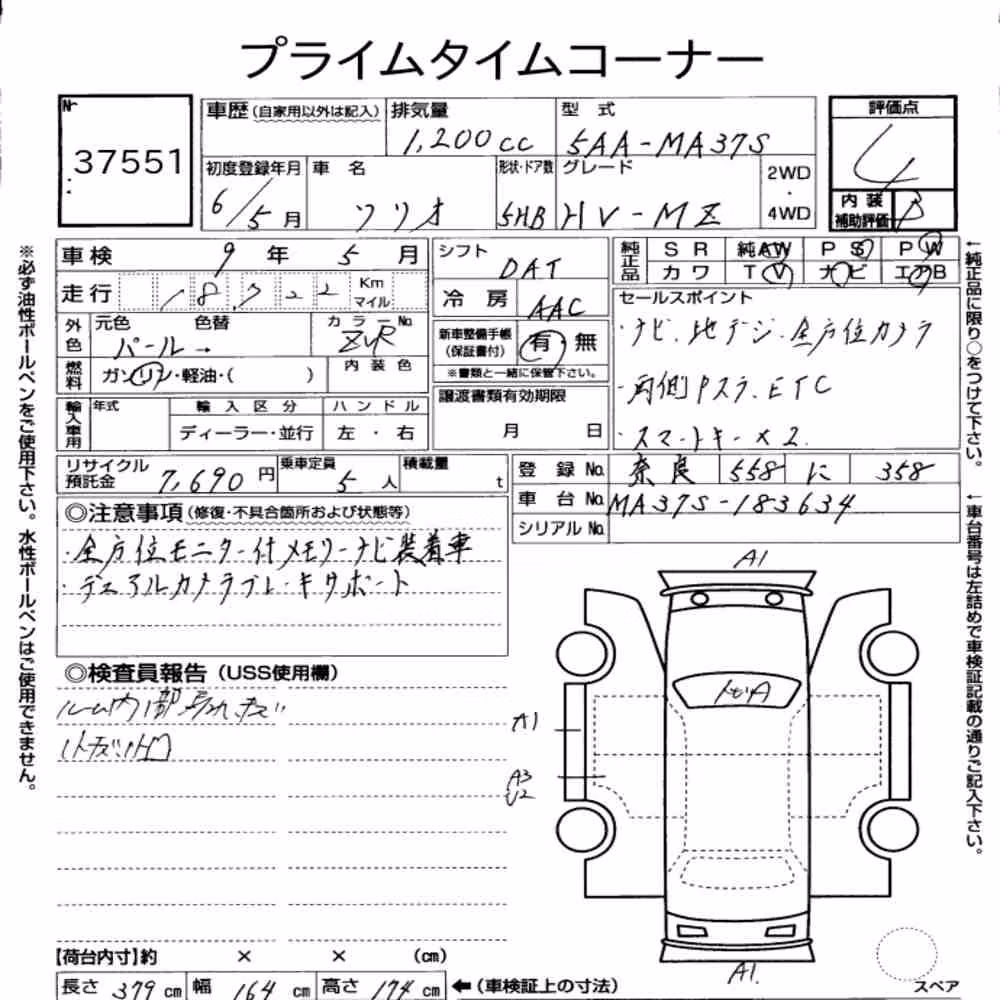 プライムタイムコーナー
№ 37551
車歴(自家用以外は記入) 排気量 1,200cc 型式 5AA-MA37S 評価点 4
初度登録年月 6/5月 車名 ソリオ 形状・ドア数 5HB グレード HV-MZ 2WD・4WD 内装補助評価 B
車検 9年 5月
走行 18,722 Km マイル
外色 元色 パール→ 色替 カラーNo. ZVR
燃料 ガソリン・軽油・( ) 内装色
輸入車用 年式 輸入区分 ディーラー・並行 ハンドル 左・右
リサイクル預託金 7,690円 乗車定員 5人 積載量 t
シフト DAT
冷房 AAC
新車整備手帳(保証書付) 有・無
※書類と一緒に保管下さい。
譲渡書類有効期限
月 日
純正品 SR 純AW PS PW
カワ TV ナビ エアB
セールスポイント
・ナビ.地デジ.全方位カメラ
・両側Pスラ.ETC
・スマートキー×2.
登録No. 奈良 558 に 358
車台No. MA37S-183634
シリアルNo.
◎注意事項(修復・不具合箇所および状態等)
・全方位モニター付メモリーナビ装着車
・デュアルカメラブレーキサポート
◎検査員報告(USS使用欄)
ルーム内部汚れ、キズ
A1
A1
A3
U2
A1.
スペア
【荷台内寸】約 × × (cm)
長さ 379 cm 幅 164 cm 高さ 174 cm ←(車検証上の寸法)
※必ず油性ボールペンをご使用下さい。水性ボールペンはご使用できません。
←純正品に限り○をつけて下さい。
←車台番号は左詰めで車検証記載の通りご記入下さい。